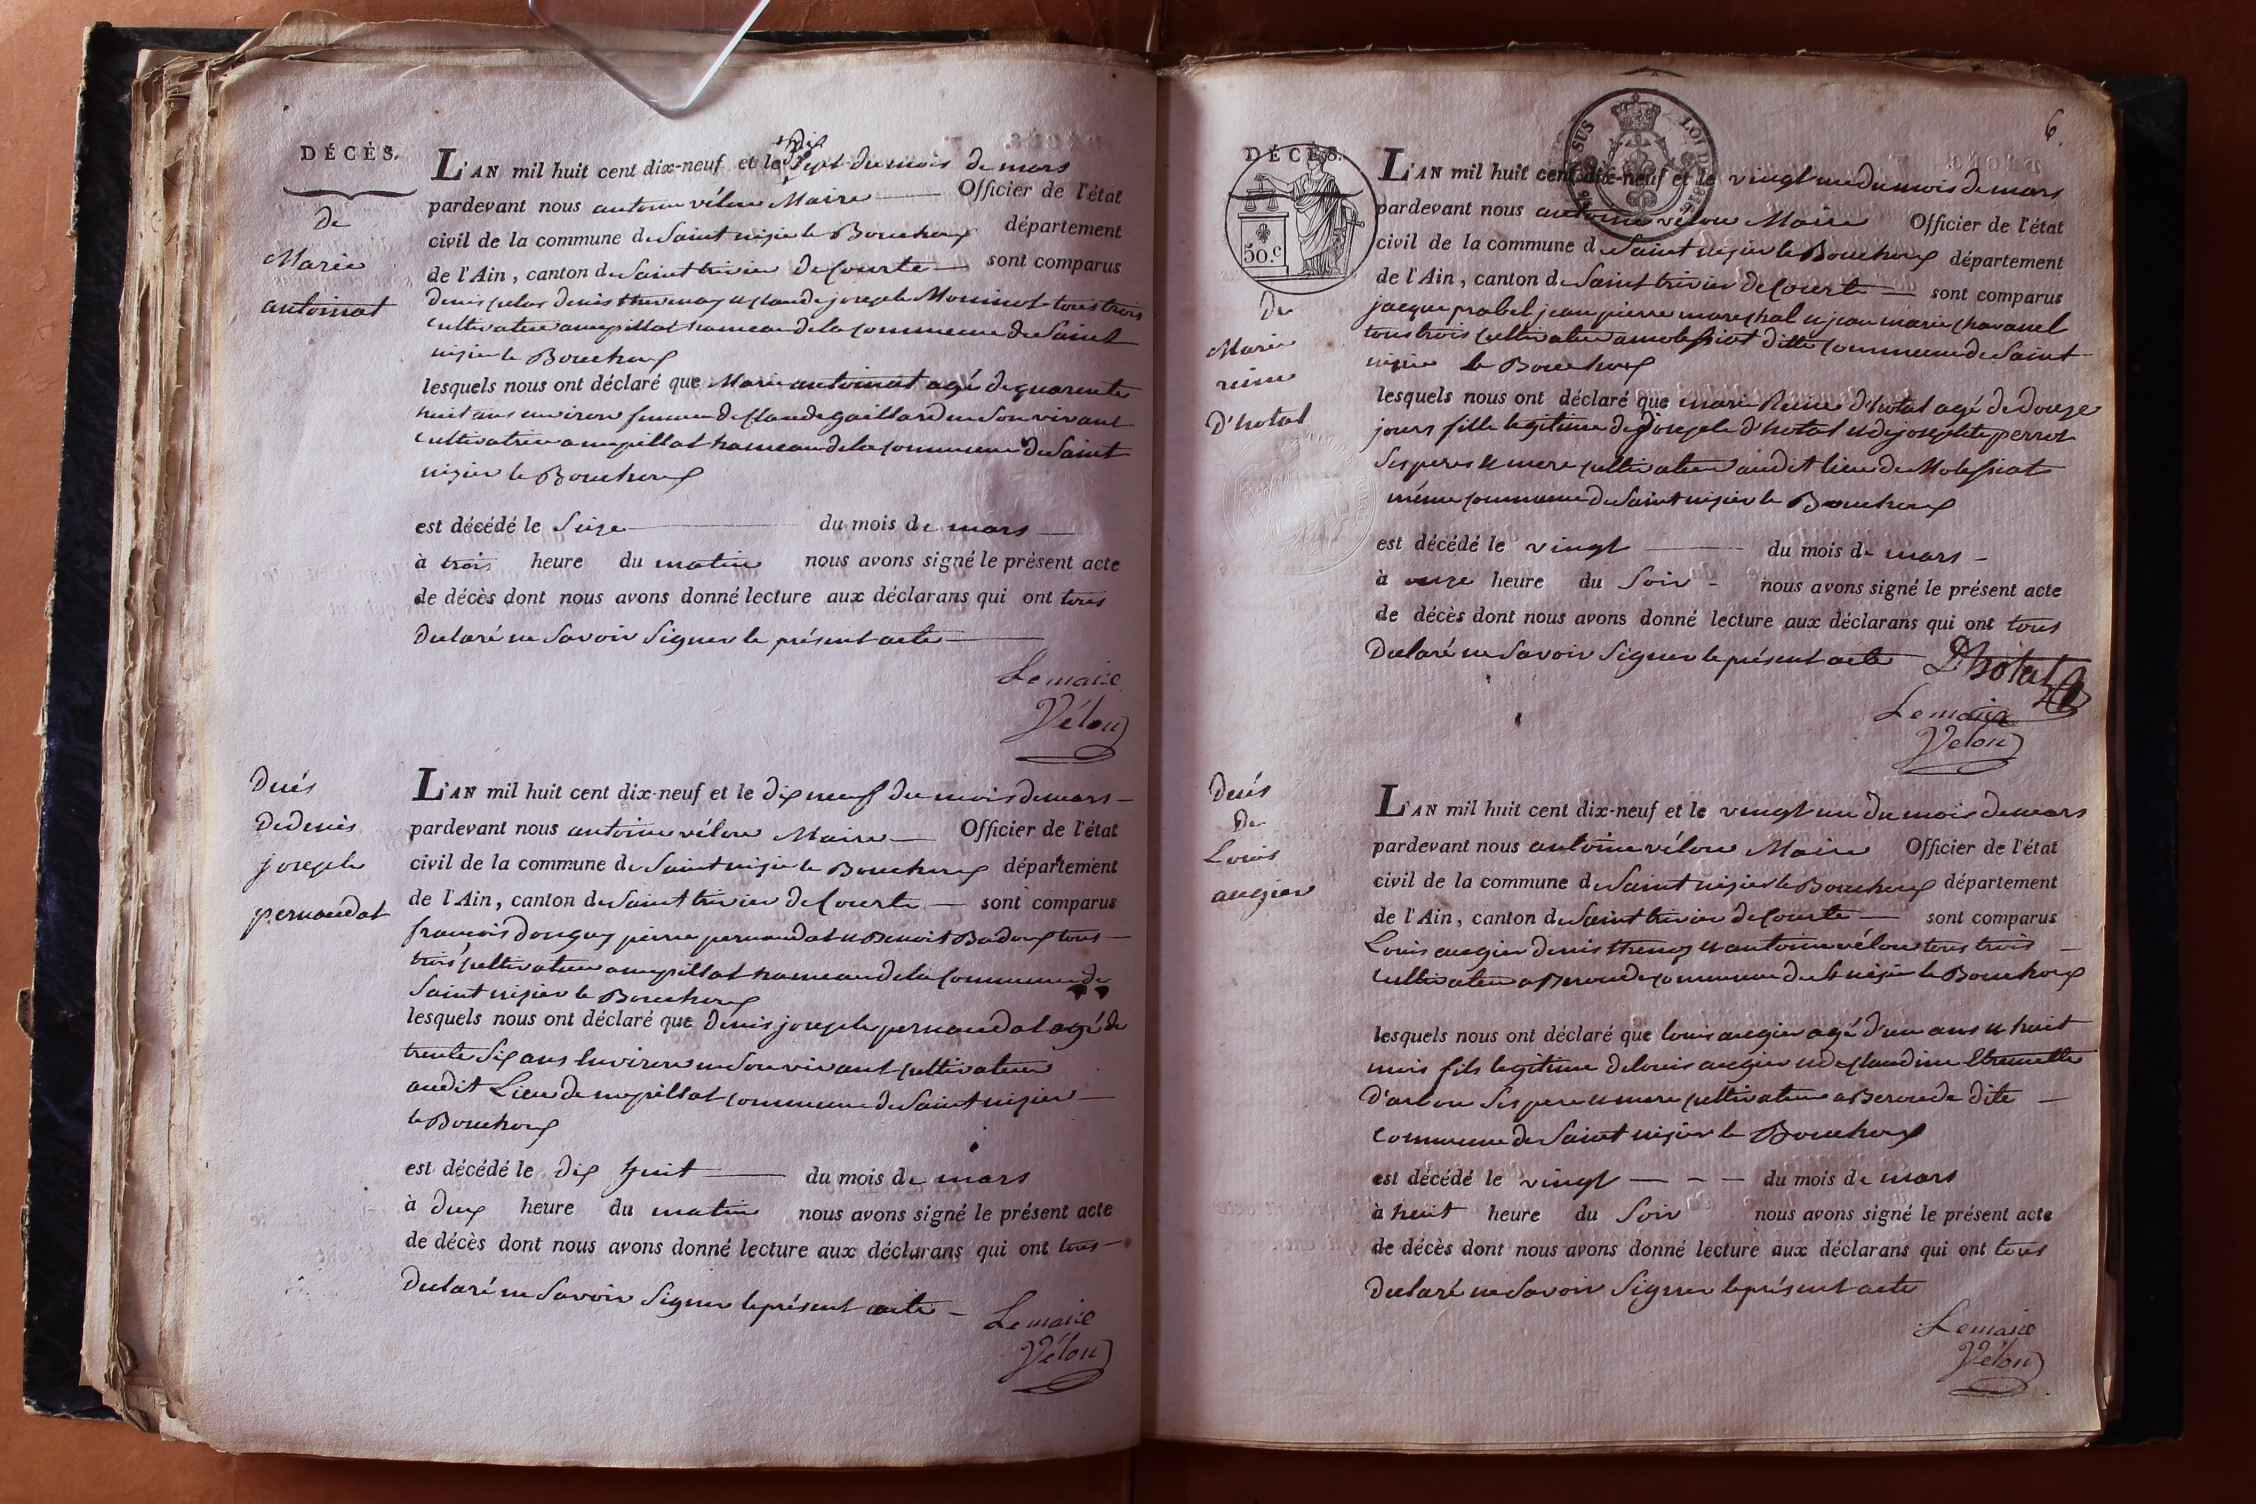 DÉCÈS.
de
Marie
antoinat
L'AN mil huit cent dix-neuf et le dix Sept du mois de mars
pardevant nous antoine vélon Maire Officier de l'état
civil de la commune de Saint nizier le Bouchoux département
de l'Ain, canton de Saint trivier de Courte sont comparus
denis thevenay et claude joseph Moninot tous trois
cultivateur a mepillat hameau de la commune de Saint
nizier le Bouchoux
lesquels nous ont déclaré que Marie antoinat agé de quarente
huit ans environ femme de Claude gaillard en Son vivant
cultivatrice a mepillat hameau de la commune de Saint
nizier le Bouchoux
est décédé le Seize du mois de mars
à trois heure du matin nous avons signé le présent acte
de décès dont nous avons donné lecture aux déclarans qui ont tous
Declaré ne Savoir Signer le présent acte
Lemaire
Vélon
Decés
de denis
joseph
pernaudat
L'AN mil huit cent dix-neuf et le dix neuf du mois de mars
pardevant nous antoine vélon Maire Officier de l'état
civil de la commune de Saint nizier le Bouchoux département
de l'Ain, canton de Saint trivier de Courte sont comparus
francois donguy pierre pernaudat et Benoit Badoux tous
trois cultivateur a mepillat hameau de la commune de
Saint nizier le Bouchoux
lesquels nous ont déclaré que Denis joseph pernaudat agé de
trente Six ans Environ en Son vivant cultivateur
audit Lieu de mepillat commune de Saint nizier
le Bouchoux
est décédé le dix huit du mois de mars
à deux heure du matin nous avons signé le présent acte
de décès dont nous avons donné lecture aux déclarans qui ont tous
Declaré ne Savoir Signer le présent acte
Lemaire
Vélon
6
SUS LOI DE 1816
DÉCÈS.
50.c
de
Marie
reine
D'hotal
L'AN mil huit cent dix-neuf et le vingt un du mois de mars
pardevant nous antoine vélon Maire Officier de l'état
civil de la commune de Saint nizier le Bouchoux département
de l'Ain, canton de Saint trivier de Courte sont comparus
jacque prabel jean pierre mareschal et jean marie chavanel
tous trois cultivateur a molissiat ditte commune de Saint
nizier le Bouchoux
lesquels nous ont déclaré que marie Reine d'hotal agé de douze
jours fille legitime de joseph d'hotal et de josephte perret
Ses peres et mere cultivateur audit lieu de Molissiat
même commune de Saint nizier le Bouchoux
est décédé le vingt du mois de mars
à onze heure du Soir nous avons signé le présent acte
de décès dont nous avons donné lecture aux déclarans qui ont tous
Declaré ne Savoir Signer le présent acte Dhôtal
Lemaire
Velon
Decés
de
Louis
augier
L'AN mil huit cent dix-neuf et le vingt un du mois de mars
pardevant nous antoine vélon Maire Officier de l'état
civil de la commune de Saint nizier le Bouchoux département
de l'Ain, canton de Saint trivier de Courte sont comparus
Louis augier denis et antoine vélon tous trois
cultivateur a Beroude commune de St nizier le Bouchoux
lesquels nous ont déclaré que louis augier agé d'un ans et huit
mois fils legitime de louis augier et de claudine
Ses pere et mere cultivateur a Beroude dite
commune de Saint nizier le Bouchoux
est décédé le vingt du mois de mars
à huit heure du Soir nous avons signé le présent acte
de décès dont nous avons donné lecture aux déclarans qui ont tous
Declaré ne Savoir Signer le présent acte
Lemaire
Vélon